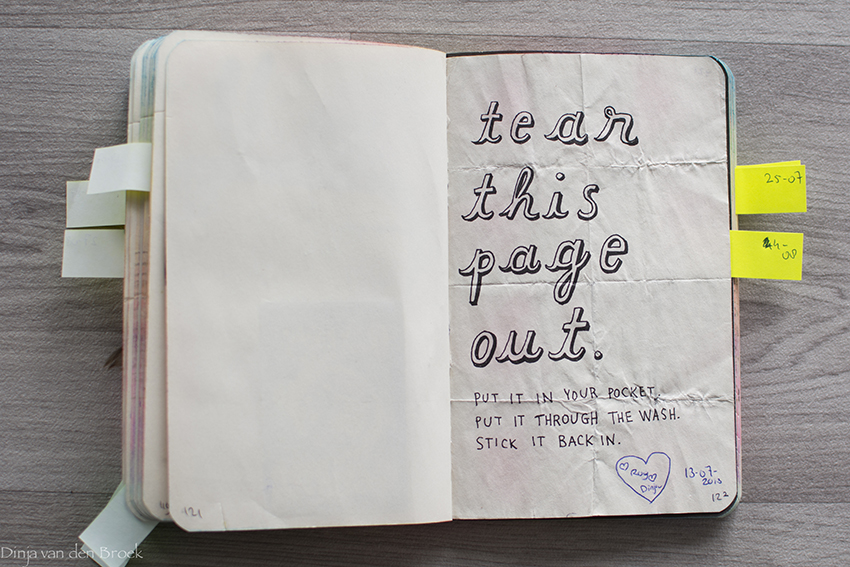 tear
this
page
out.
PUT IT IN YOUR POCKET.
PUT IT THROUGH THE WASH.
STICK IT BACK IN.
Dinja
13-07-
2013
122
121
25-07
-08
Dinja van den Broek